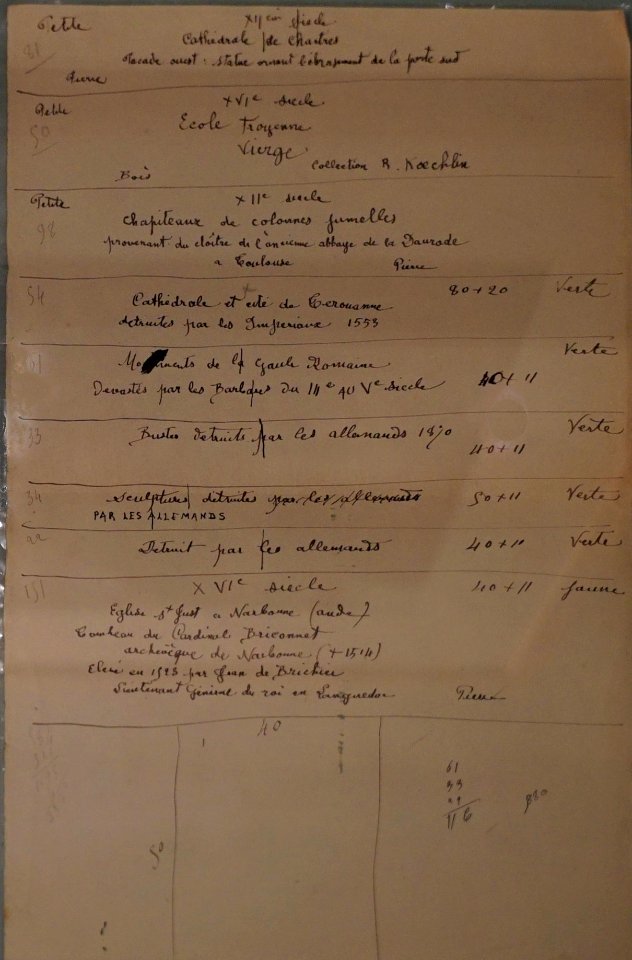 Petite XIIème siècle
81 Cathédrale de Chartres
Facade ouest : statue ornant l'ébrasement de la porte sud
Pierre
Petite XVIe siècle
50 Ecole Troyenne
Vierge
Bois Collection R. Koechlin
Petite XIIe siècle
98 Chapiteaux de colonnes jumelles
provenant du cloître de l'ancienne abbaye de la Daurade
a Toulouse Pierre
54 Cathédrale et cité de Terouanne 80+20 Verte
detruites par les Imperiaux 1553
61 de la Gaule Romaine Verte
Devastés par les Barbares du III e au Ve siecle 40+11
33 Bustes detruits par les allemands 1870 Verte
40+11
34 Sculptures detruites par les allemands 50+11 Verte
PAR LES ALLEMANDS
22 Detruit par les allemands 40+11 Verte
151 XVIe siècle 40+11 Jaune
Eglise St Just a Narbonne (aude)
Tombeau du Cardinal Briconnet
archevêque de Narbonne (+1514)
Elevé en 1523 par Jean de
Lieutenant Général du roi en Languedoc Pierre
40
61
33
22
116
50